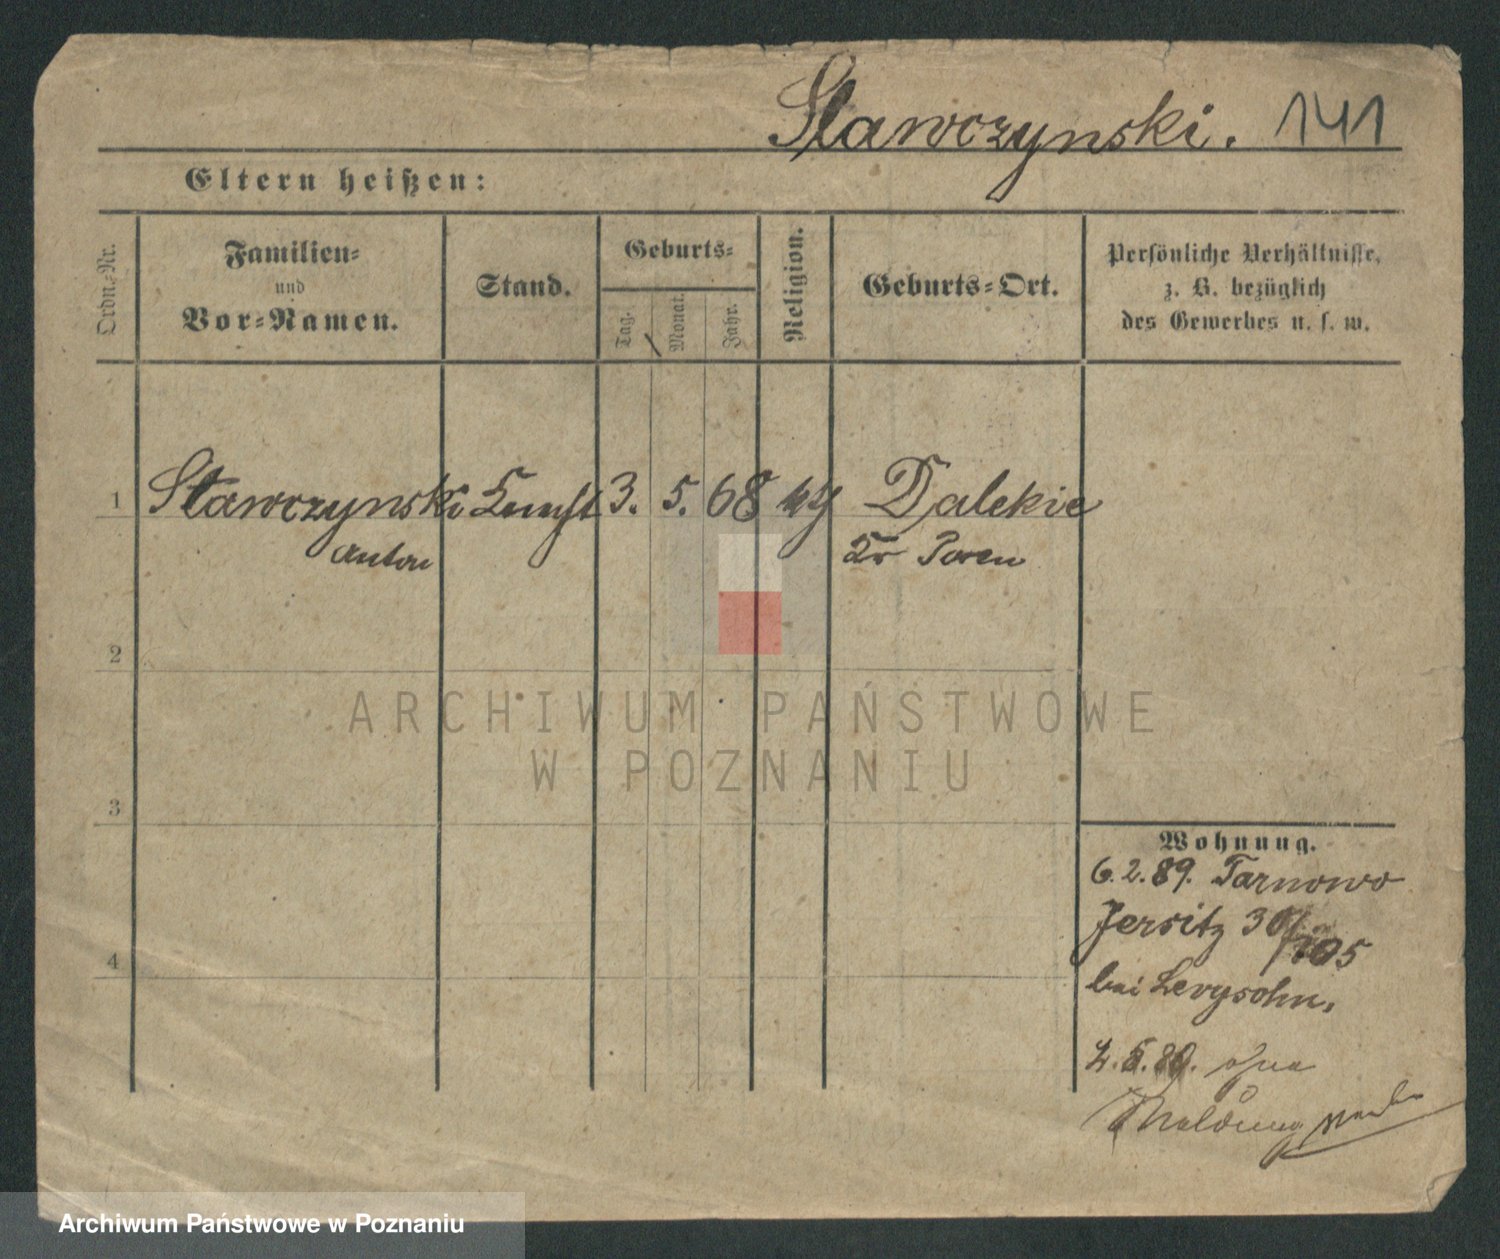 Slawczynski. 141
Eltern heißen:
Ordn.-Nr.
Familien-
und
Vor-Namen.
Stand.
Geburts-
Tag.
Monat.
Jahr.
Religion.
Geburts-Ort.
Persönliche Verhältnisse,
z. B. bezüglich
des Gewerbes u. s. w.
1 Slawczynski 3. 5. 68 Dalekie
Anton Kr Posen
2
3
4
Wohnung.
6.2.89. Tarnowo
Jersitz 30/105
bei Levysohn.
ohne
Meldung
ARCHIWUM PAŃSTWOWE
W POZNANIU
Archiwum Państwowe w Poznaniu